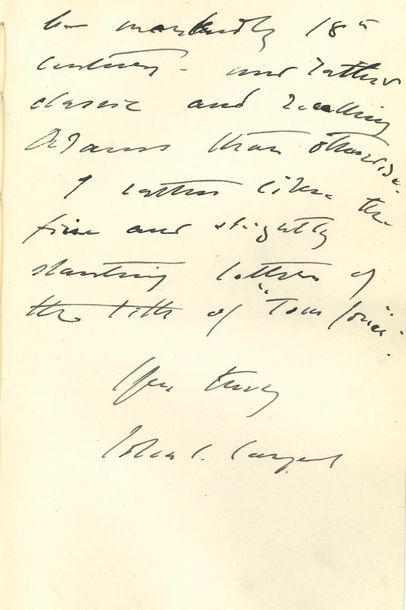 be markedly 18th
century - and rather
classic and recalling
Adams than otherwise.
I rather like the
fine and slightly
slanting letters of
the title of "Tom Jones".
Yrs truly
John S. Sargent